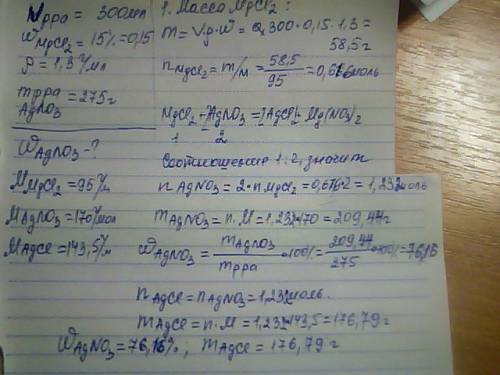 Vрра = 300мл
WMgCl₂ = 15% = 0,15
ρ = 1,3 г/мл
mрра = 275г
AgNO₃
WAgNO₃ = ?
MMgCl₂ = 95 г/м
MAgNO₃ = 170 г/моль
MAgCl = 143,5 г/м
1. Масса MgCl₂:
m = V·ρ·W = 300·0,15·1,3 =
58,5г
nMgCl₂ = m/M = 58,5/95 = 0,616моль
MgCl₂ + 2AgNO₃ = 2AgCl + Mg(NO₃)₂
1 2
Соотношение 1:2, значит
nAgNO₃ = 2·nMgCl₂ = 0,616·2 = 1,232моль
mAgNO₃ = n·M = 1,232·170 = 209,44г
WAgNO₃ = mAgNO₃/mрра ·100% = 209,44/275 ·100% = 76,16
nAgCl = nAgNO₃ = 1,232моль.
mAgCl = n·M = 1,232·143,5 = 176,79г
WAgNO₃ = 76,16%; mAgCl = 176,79г